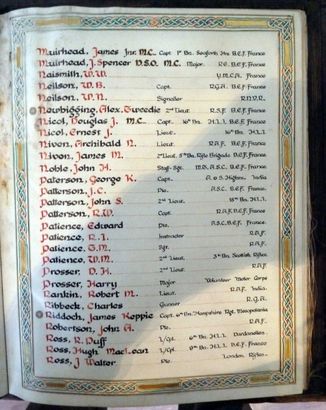 Muirhead, James Jnr. M.C. Capt. 1st Bn. Seaforth Hrs. B.E.F. France
Muirhead, J. Spencer D.S.O. M.C. Major. R.E. B.E.F. France
Naismith, W.W. Y.M.C.A. France
Neilson, W.B. Capt. R.G.A. B.E.F. France
Neilson, W.N. Signaller R.N.V.R.
Newbigging, Alex. Tweedie 2nd Lieut. R.S.F. B.E.F. France
Nicol, Douglas J. M.C. Capt. 16th H.L.I. B.E.F. France
Nicol, Ernest J. Lieut. 16th H.L.I.
Niven, Archibald N. Lieut. R.A.F. B.E.F. France
Niven, James M. 2nd Lieut. 5th Bn. Rifle Brigade B.E.F. France
Noble, John H. Staff-Sgt. B.E.F. France
Paterson, George K. Capt. A & S Highrs. India
Patterson, J.C. Pte. A.S.C. B.E.F. France
Patterson, John S. 2nd Lieut. H.L.I. B.E.F. France
Patterson, R.W. Capt. R.A.F. B.E.F. France
Patience, Edward Pte. A.S.C. B.E.F. France
Patience, R.I. Instructor R.A.F.
Patience, T.M. Sgt. R.A.F.
Patience, W.M. 2nd Lieut. Scottish Rifles
Prosser, D.H. 2nd Lieut. R.A.F.
Prosser, Harry Major Volunteer Motor Corps
Rankin, Robert M. Lieut. R.A.F. India.
Ribbeck, Charles Gunner R.G.A.
Riddoch, James Keppie Capt. Hampshire Rgt. Mesopotamia
Robertson, John A. Pte. R.A.F.
Ross, R. Duff L/Cpl. H.L.I. Dardanelles
Ross, Hugh MacLean L/Cpl. 9th Bn. H.L.I. B.E.F. France
Ross, J Walter Pte. London Rifles